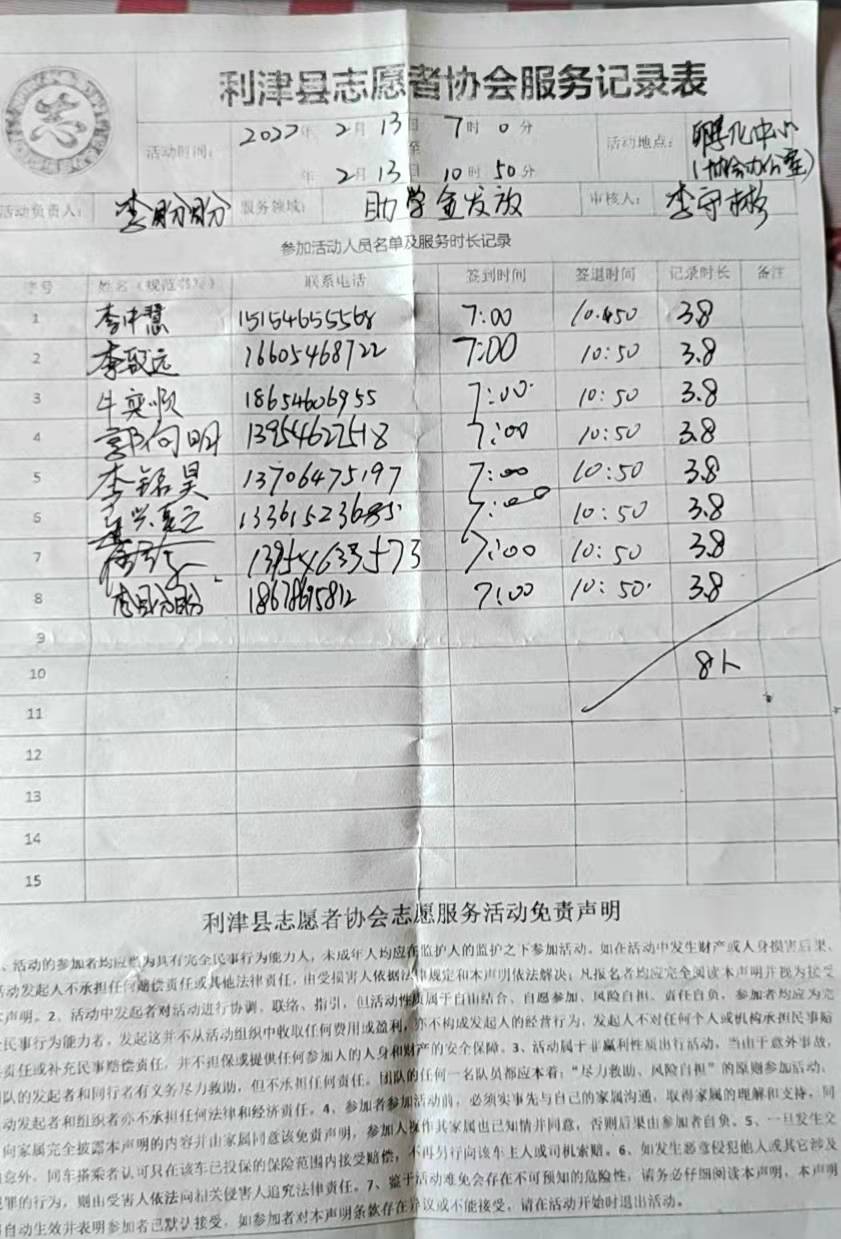 利津县志愿者协会服务记录表
活动时间： 2022年 2月 13日 7时 0分 至 年 2月 13日 10时 50分
活动地点： 孵化中心（协会办公室）
活动负责人： 李盼盼 服务领域： 助学金发放 审核人： 李守彬
参加活动人员名单及服务时长记录
序号 姓名（规范书写） 联系电话 签到时间 签退时间 记录时长 备注
1 李中慧 15154655568 7:00 3.8
2 李致远 16605468722 7:00 10:50 3.8
3 牛奕顺 18654606955 7:00 10:50 3.8
4 郭向明 13954622518 7:00 10:50 3.8
5 李铭昊 13706475197 7:00 10:50 3.8
6 7:00 10:50 3.8
7 7:00 10:50 3.8
8 李盼盼 18678695812 7:00 10:50 3.8
9
10 8人
11
12
13
14
15
利津县志愿者协会志愿服务活动免责声明
、活动的参加者均应当为具有完全民事行为能力人，未成年人均应在监护人的监护之下参加活动。如在活动中发生财产或人身损害后果、
活动发起人不承担任何赔偿责任或其他法律责任，由受损害人依据法律规定和本声明依法解决；凡报名者均应完全阅读本声明并视为接受
本声明。2、活动中发起者对活动进行协调、联络、指引，但活动性质属于自由结合、自愿参加、风险自担、责任自负，参加者均应为完
全民事行为能力者，发起这并不从活动组织中收取任何费用或盈利，亦不构成发起人的经营行为，发起人不对任何个人或机构承担民事赔
责任或补充民事赔偿责任，并不担保或提供任何参加人的人身和财产的安全保障。3、活动属于非赢利性质出行活动，当由于意外事故，
队的发起者和同行者有义务尽力救助，但不承担任何责任。团队的任何一名队员都应本着：“尽力救助、风险自担”的原则参加活动，
动发起者和组织者亦不承担任何法律和经济责任。4、参加者参加活动前，必须实事先与自己的家属沟通，取得家属的理解和支持，同
向家属完全披露本声明的内容并由家属同意该免责声明，参加人视作其家属也已知情并同意，否则后果由参加者自负。5、一旦发生交
意外，同车搭乘者认可只在该车已投保的保险范围内接受赔偿，不再另行向该车主人或司机索赔。6、如发生恶意侵犯他人或其它涉及
犯罪的行为，则由受害人依法向相关侵害人追究法律责任。7、鉴于活动难免会存在不可预知的危险性，请务必仔细阅读本声明，本声明
自动生效并表明参加者已默认接受，如参加者对本声明条款存在异议或不能接受，请在活动开始时退出活动。